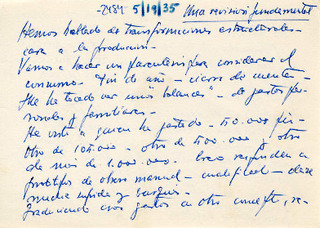 -2484- 5/19/35 Una revisión fundamental
Hemos hablado de transformaciones estructurales -
cara a la producción.
Vamos a hacer un paréntesis para considerar el
consumo. - Fin de año - cierre de cuentas -
Me he tocado ver unos "balances" - de gastos per-
sonales y familiares. -
He visto a quien ha gastado - 50.000 pts -
Otro de 105.000 - otro de 500.000 y otro
de más de 1.000.000. -
de obrero manual - cualificado - clase
media
Traduciendo esos gastos a otro